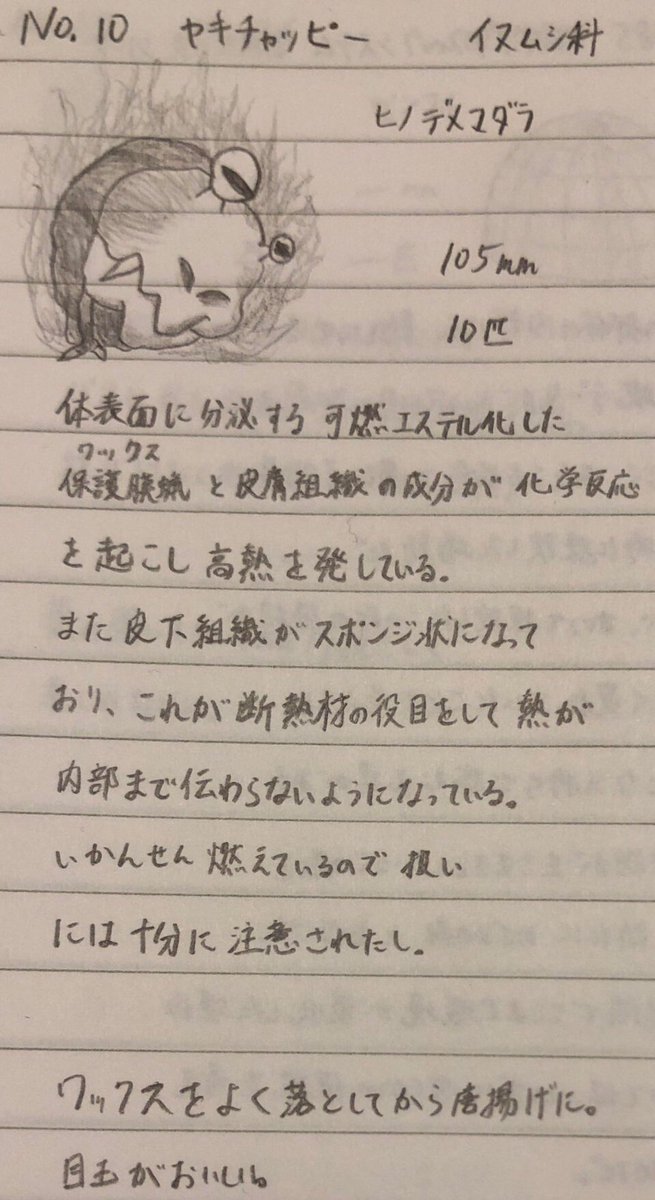 No. 10 ヤキチャッピー イヌムシ科
ヒノデメマダラ
105mm
10匹
体表面に分泌する可燃エステル化した
ワックス
保護膜蝋と皮膚組織の成分が化学反応
を起こし高熱を発している。
また皮下組織がスポンジ状になって
おり、これが断熱材の役目をして熱が
内部まで伝わらないようになっている。
いかんせん燃えているので扱い
には十分に注意されたし。
ワックスをよく落としてから唐揚げに。
目玉がおいしい。